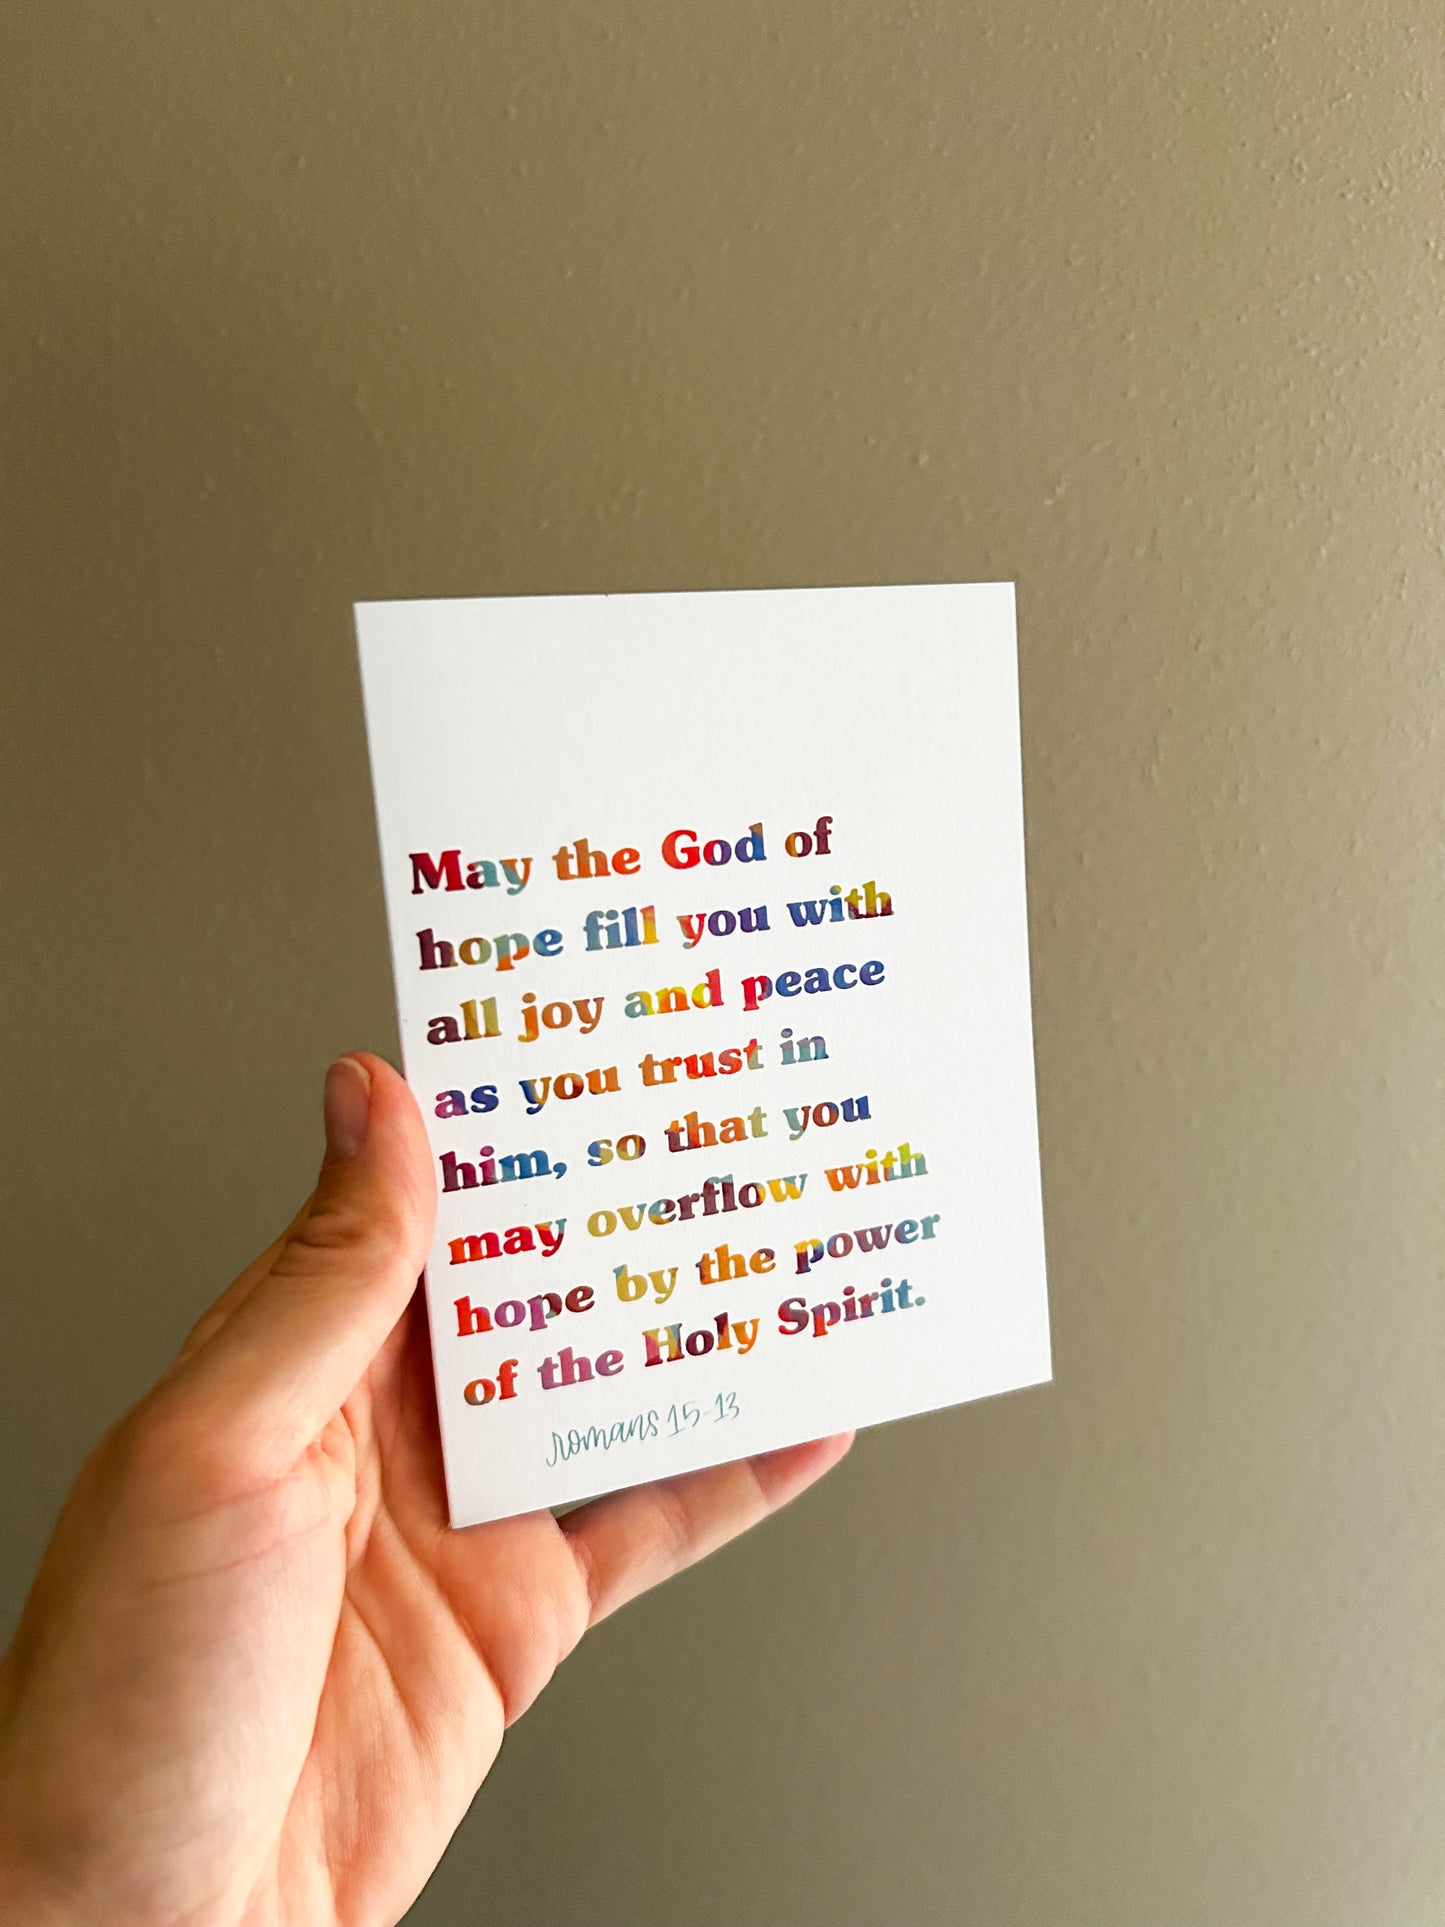 May the God of
hope fill you with
all joy and peace
as you trust in
him, so that you
may overflow with
hope by the power
of the Holy Spirit.
romans 15-13